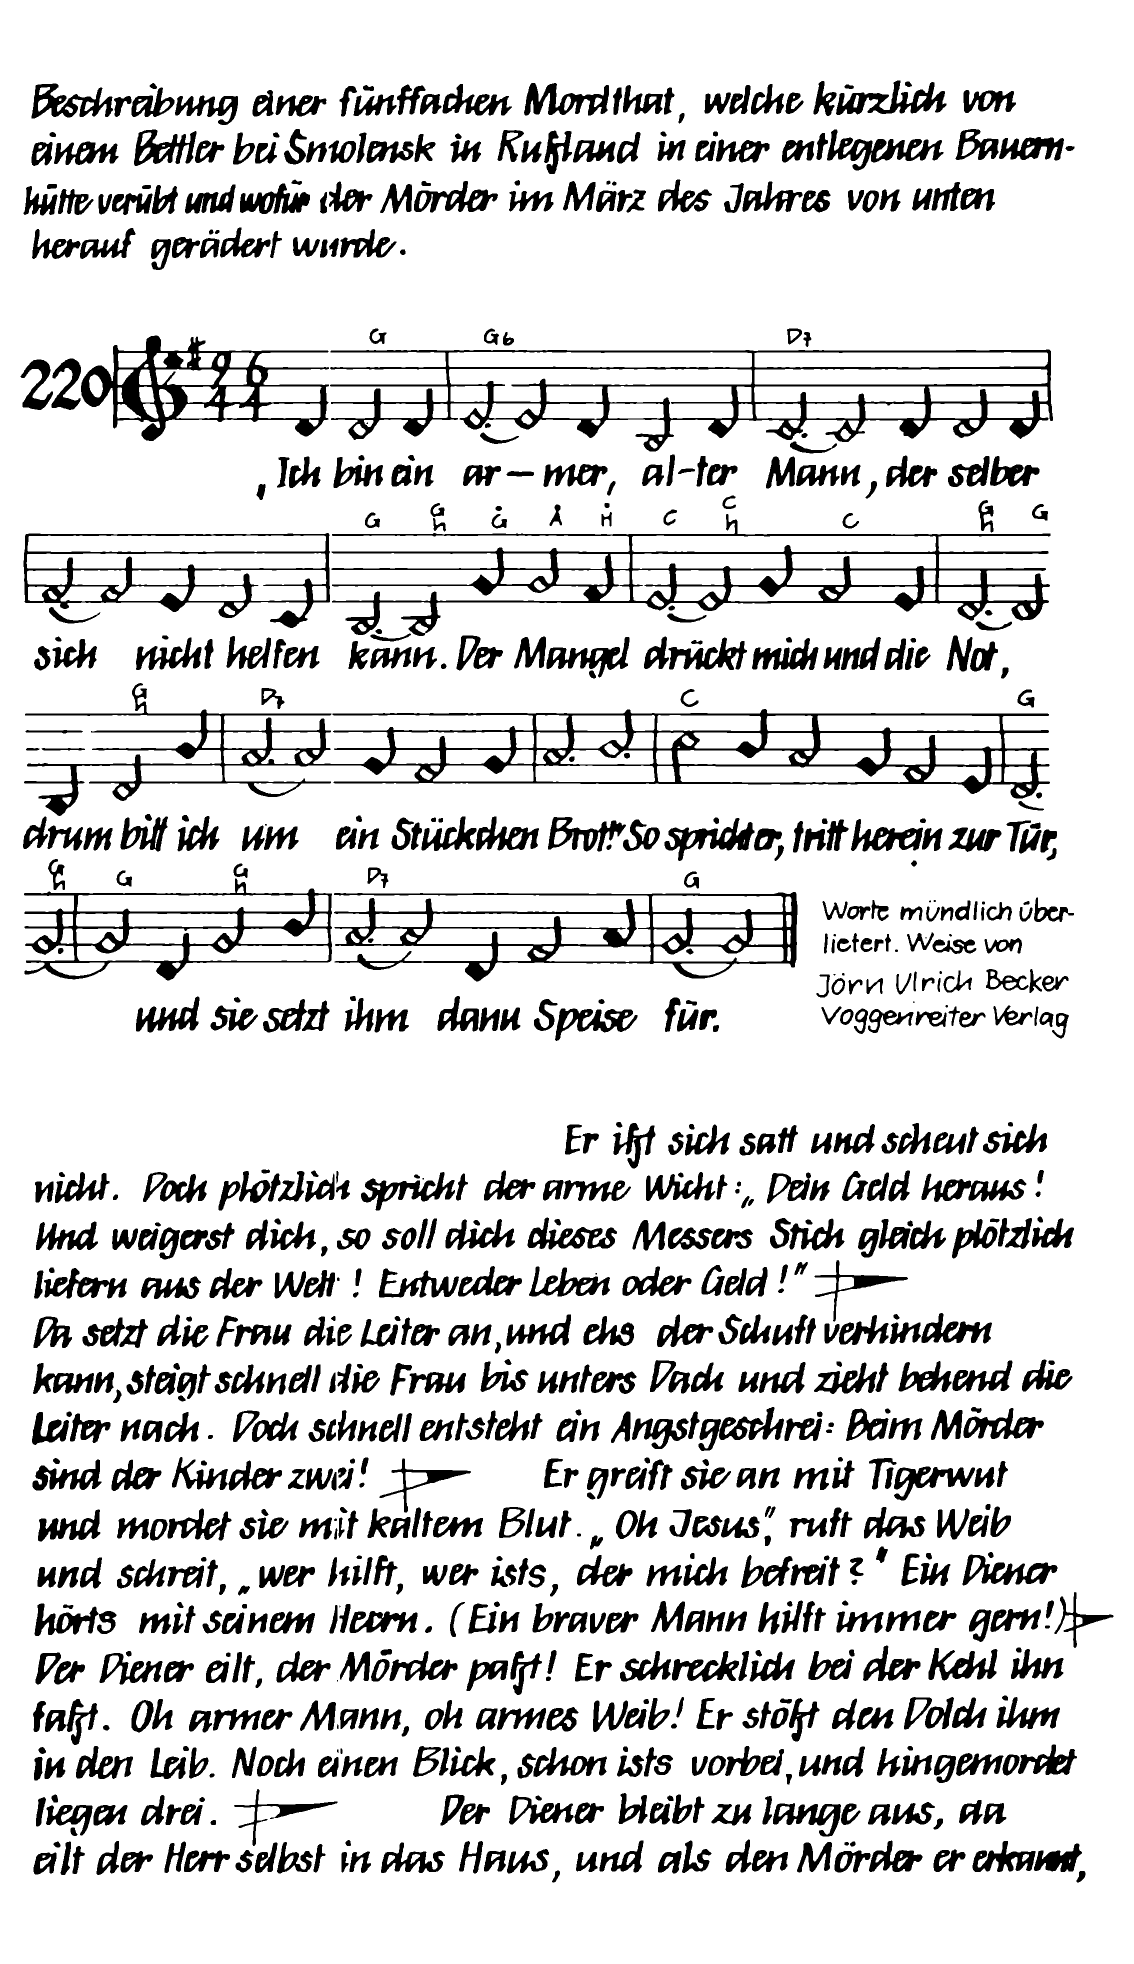 Beschreibung einer fünffachen Mordthat, welche kürzlich von
einem Bettler bei Smolensk in Rußland in einer entlegenen Bauern-
hütte verübt und wofür der Mörder im März des Jahres von unten
herauf gerädert wurde.
G G6 D7
220 9 4 6 4
„Ich bin ein ar-mer, al-ter Mann, der selber
G G h Ġ Ȧ Ḣ C C h C G h G
sich nicht helfen kann. Der Mangel drückt mich und die Not,
G h D7 C G
drum bitt ich um ein Stückchen Brot!" So spricht er, tritt herein zur Tür,
G h G G h D7 G
und sie setzt ihm dann Speise für.
Worte mündlich über-
liefert. Weise von
Jörn Ulrich Becker
Voggenreiter Verlag
Er ißt sich satt und scheut sich
nicht. Doch plötzlich spricht der arme Wicht: „Dein Geld heraus!
Und weigerst dich, so soll dich dieses Messers Stich gleich plötzlich
liefern aus der Welt! Entweder Leben oder Geld!"
Da setzt die Frau die Leiter an, und ehs der Schuft verhindern
kann, steigt schnell die Frau bis unters Dach und zieht behend die
Leiter nach. Doch schnell entsteht ein Angstgeschrei: Beim Mörder
sind der Kinder zwei! Er greift sie an mit Tigerwut
und mordet sie mit kaltem Blut. „Oh Jesus", ruft das Weib
und schreit, „wer hilft, wer ists, der mich befreit?" Ein Diener
hörts mit seinem Herrn. (Ein braver Mann hilft immer gern!)
Der Diener eilt, der Mörder paßt! Er schrecklich bei der Kehl ihn
faßt. Oh armer Mann, oh armes Weib! Er stößt den Dolch ihm
in den Leib. Noch einen Blick, schon ists vorbei, und hingemordet
liegen drei. Der Diener bleibt zu lange aus, da
eilt der Herr selbst in das Haus, und als den Mörder er erkannt,